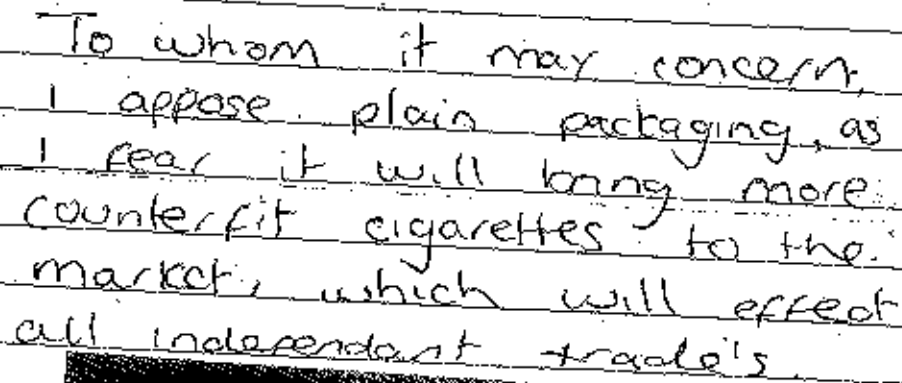 To whom it may concern,
I appose plain packaging, as
I fear it will bring more
counterfit cigarettes to the
market, which will effect
all independant trade's.